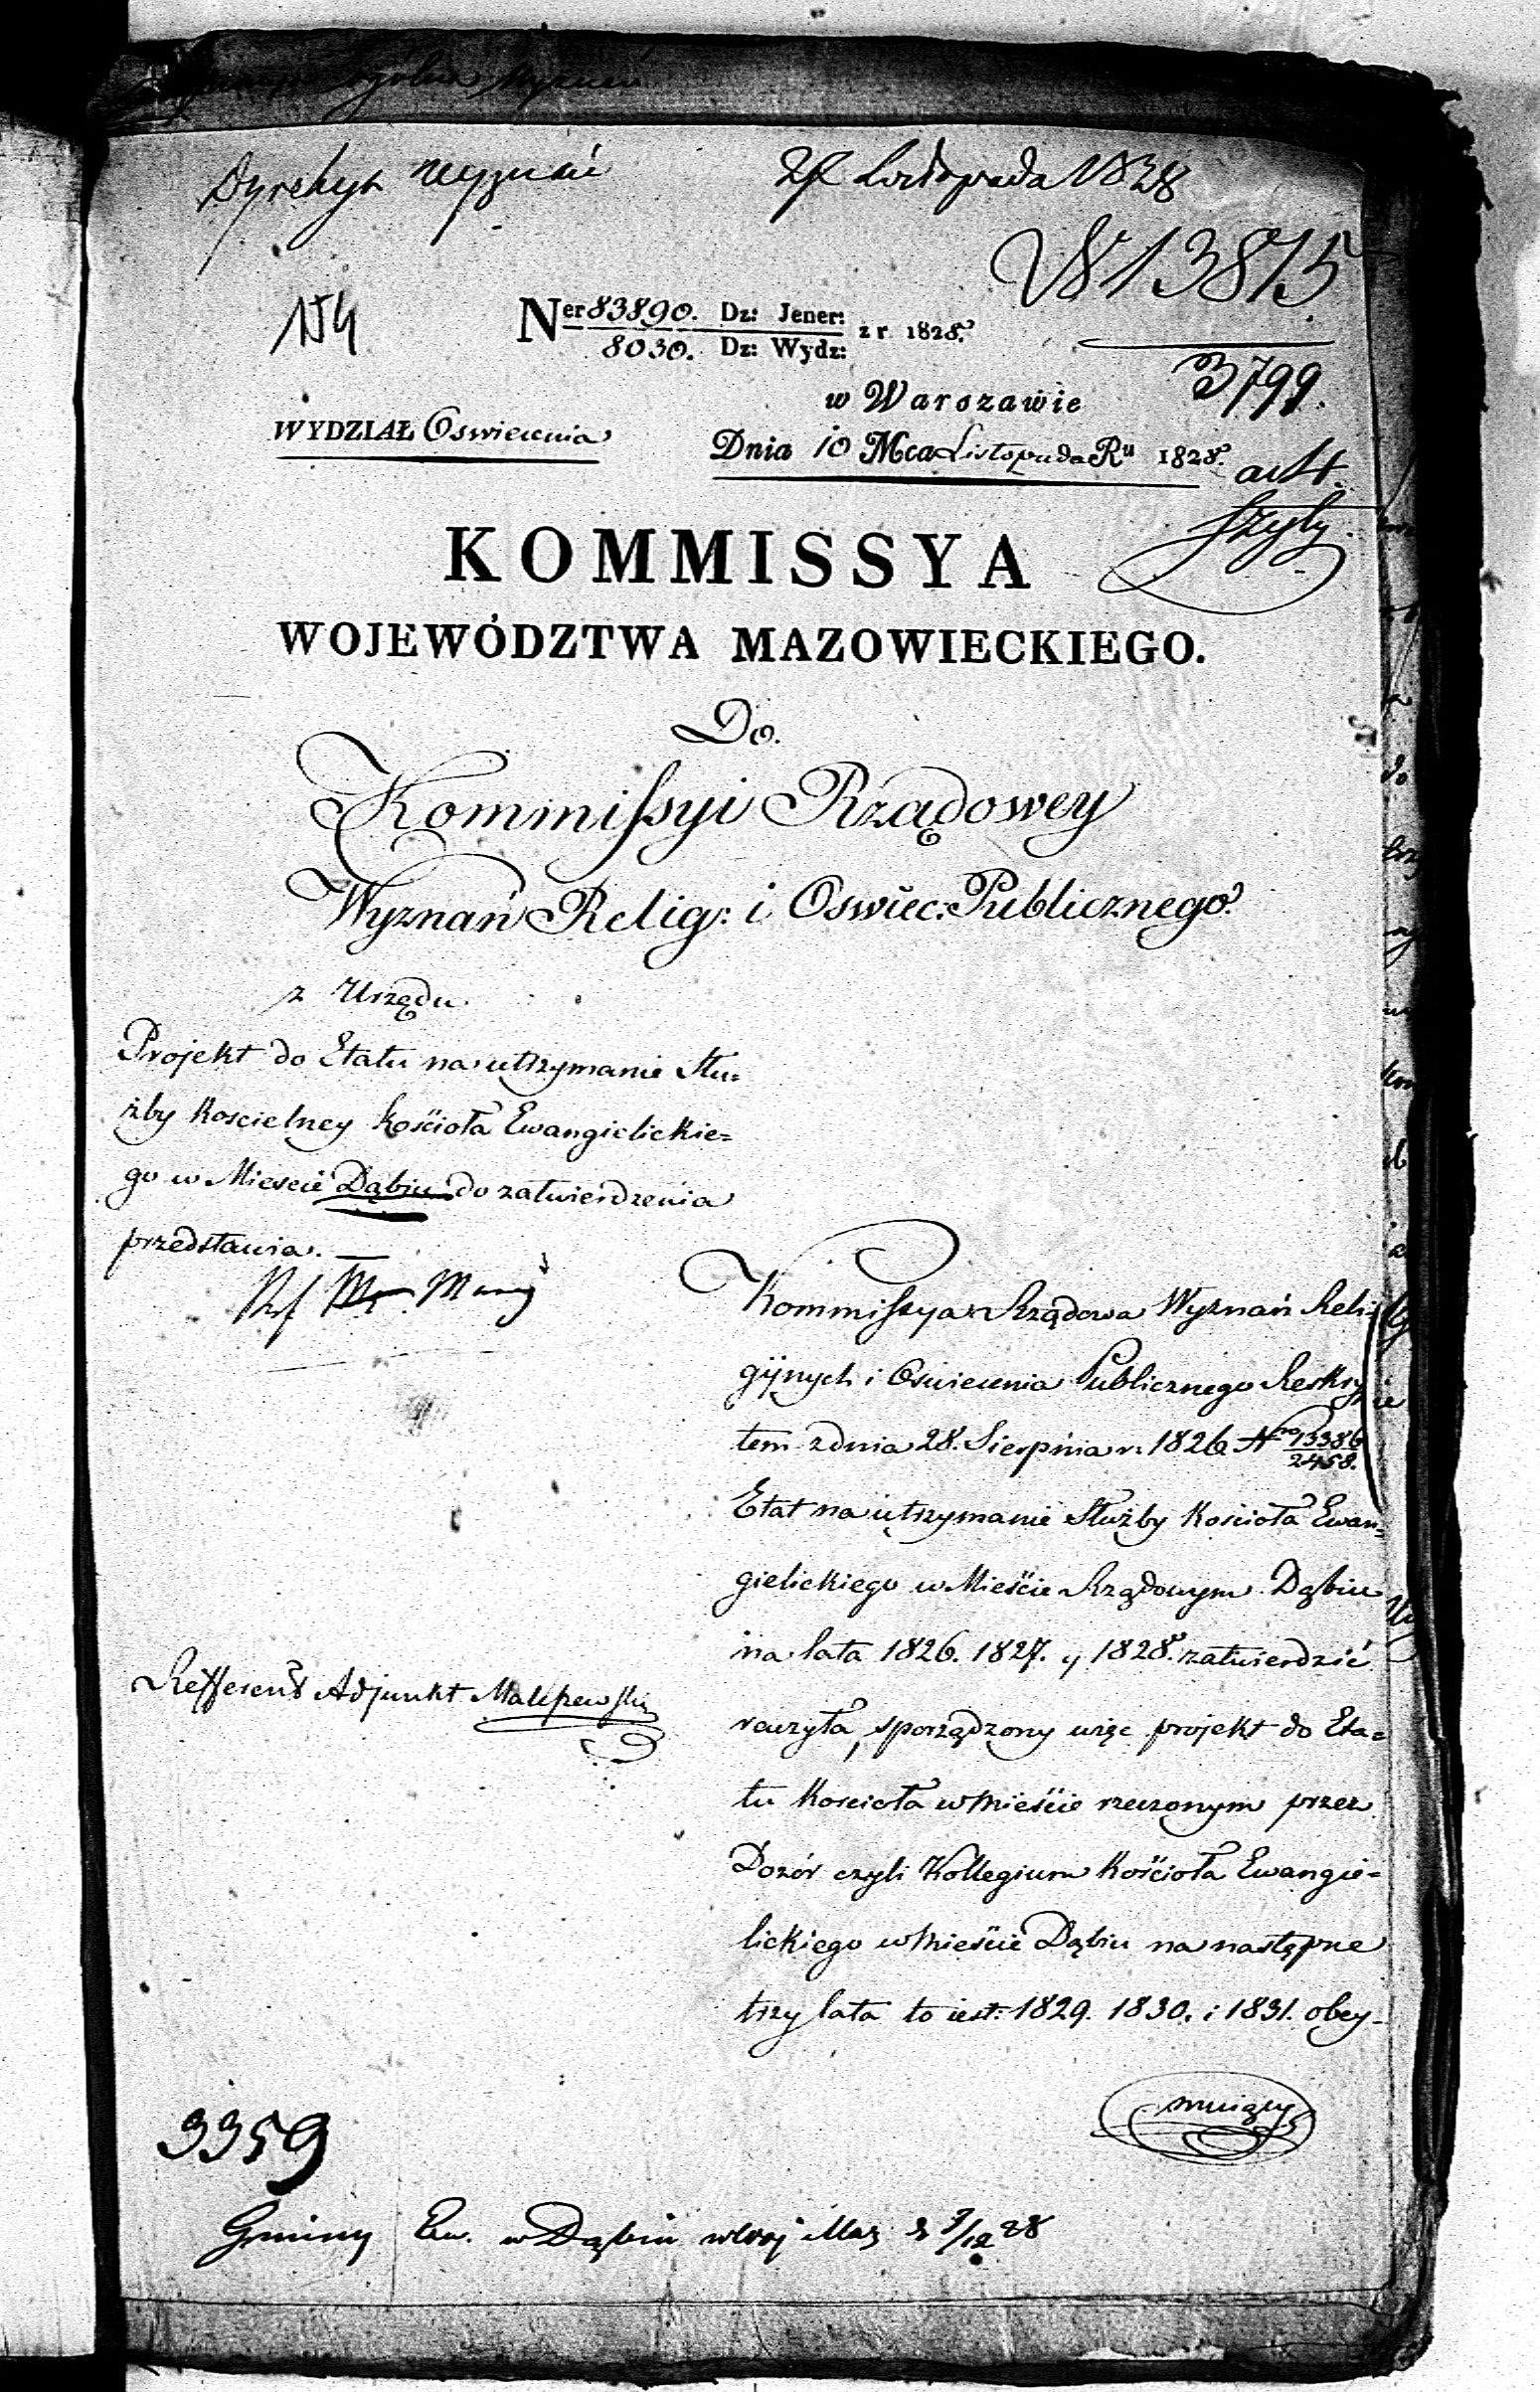 Dyrekcya Wyznań
Listopada 1828
N 13815
3799.
N 4
Ner 83890. Dz: Jener: z r 1828.
8030. Dz: Wydz:
w Warszawie
WYDZIAŁ Oswiecenia
Dnia 10 Mca Listopada Ru 1828. akt.
szyty.
KOMMISSYA
WOJEWÓDZTWA MAZOWIECKIEGO.
Do.
Kommissyi Rządowey
Wyznań Relig: i Oswiec: Publicznego.
z Urzędu.
Projekt do Etatu na utrzymanie Słu=
żby Koscielney Kościoła Ewangielickie=
go w Miescie Dąbiu do zatwierdzenia
przedstawia. —
Kommissya Rządowa Wyznań Reli=
gijnych i Oświecenia Publicznego Reskryp
tem z dnia 28. Sierpnia r. 1826 Nro 13386
2458.
Etat na utrzymanie Służby Kościoła Ewan=
gielickiego w Mieście Rządowym Dąbiu
na lata 1826. 1827. y 1828. zatwierdzić
Refferent Adjunkt
raczyła, sporządzony więc projekt do Eta=
tu Kościoła w Mieście rzeczonym przez
Dozór czyli Kollegium Kościoła Ewangie=
lickiego w Mieście Dąbiu na następne
trzy lata to iest: 1829. 1830. i 1831. obey=
muiący
3359
Gminy Ew. w Dąbiu w Woj Maz 9/12 28